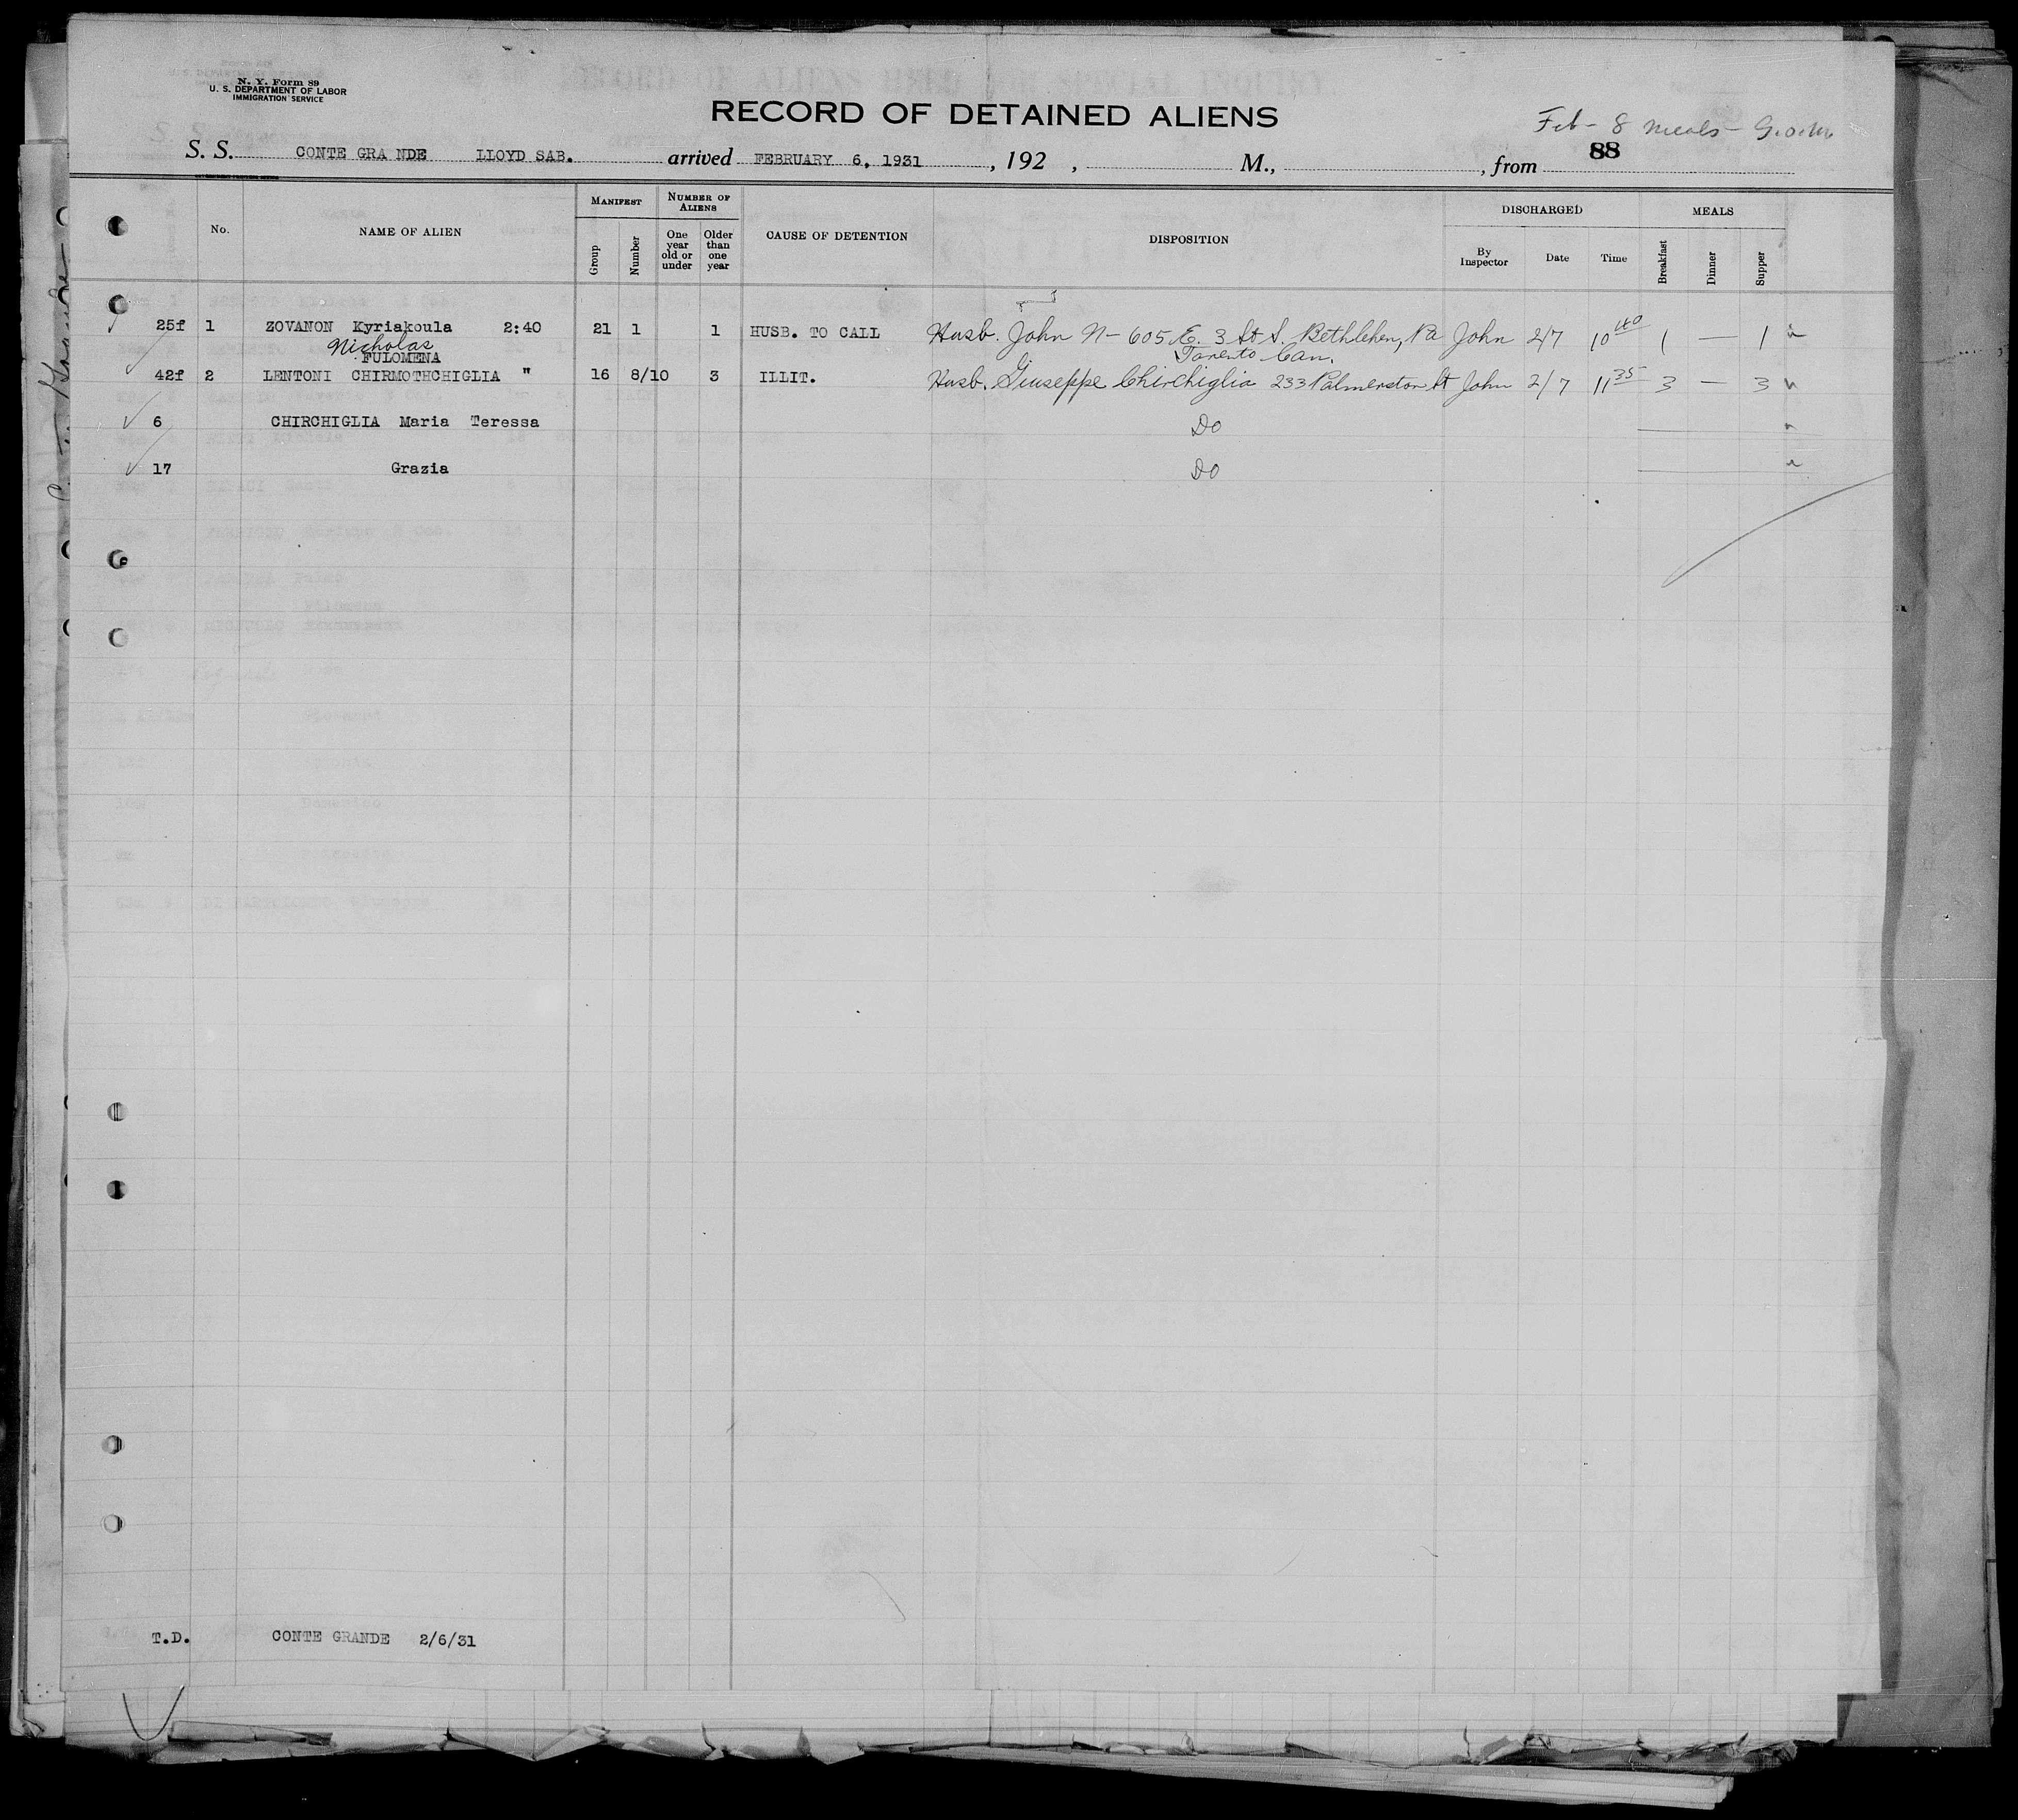 N. Y. Form 89
U. S. DEPARTMENT OF LABOR
IMMIGRATION SERVICE
RECORD OF DETAINED ALIENS
Feb - 8 meals -
S. S. CONTE GRA NDE LLOYD SAB. arrived FEBRUARY 6, 1931 , 192 , M., , from 88
No. NAME OF ALIEN MANIFEST Group Number NUMBER OF ALIENS One year old or under Older than one year CAUSE OF DETENTION DISPOSITION DISCHARGED By Inspector Date Time MEALS Breakfast Dinner Supper
25f 1 ZOVANON Kyriakoula 2:40 21 1 1 HUSB. TO CALL Husb. John N - 605 E. 3 St S. Bethlehem, Pa John 2/7 10 40 1 — 1
Nicholas
FULOMENA Toronto Can.
42f 2 LENTONI CHIRMOTHCHIGLIA " 16 8/10 3 ILLIT. Husb. Giuseppe Chirchiglia 233 Palmerston St John 2/7 11 35 3 — 3
6 CHIRCHIGLIA Maria Teressa DO
17 Grazia DO
T.D. CONTE GRANDE 2/6/31